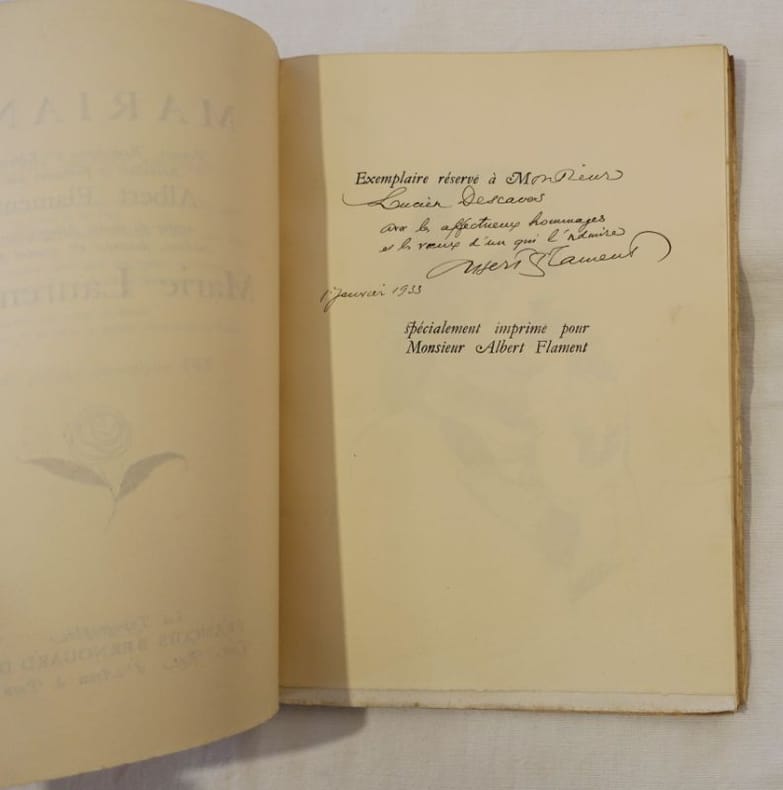 Exemplaire réservé à Monsieur
Lucien Descaves
avec les affectueux hommages
et les vœux d'un qui l'admire
Albert Flament
1er janvier 1933
spécialement imprimé pour
Monsieur Albert Flament
MARIAN
Albert Flament
Marie Lauren
La Typographie
FRANÇOIS BERNOUARD